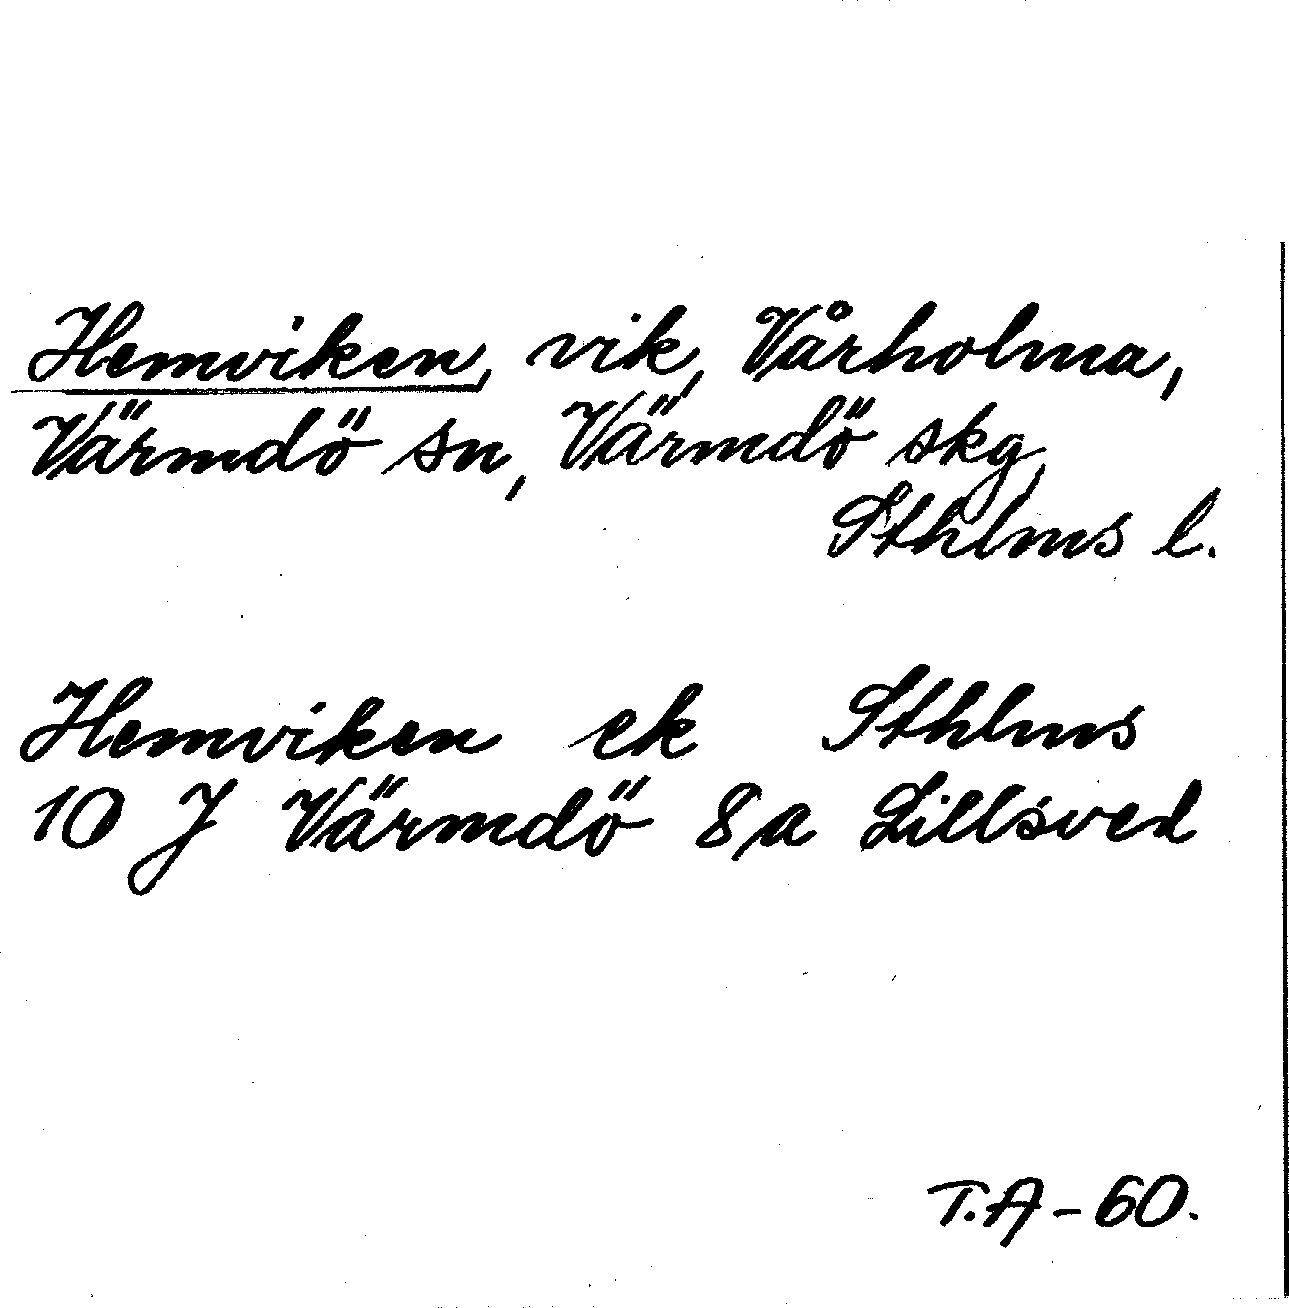 Hemviken, vik, Vårholma,
Värmdö sn, Värmdö skg,
Sthlms l.
Hemviken ek Sthlms
10 J Värmdö 8a Lillsved
T.A-60.